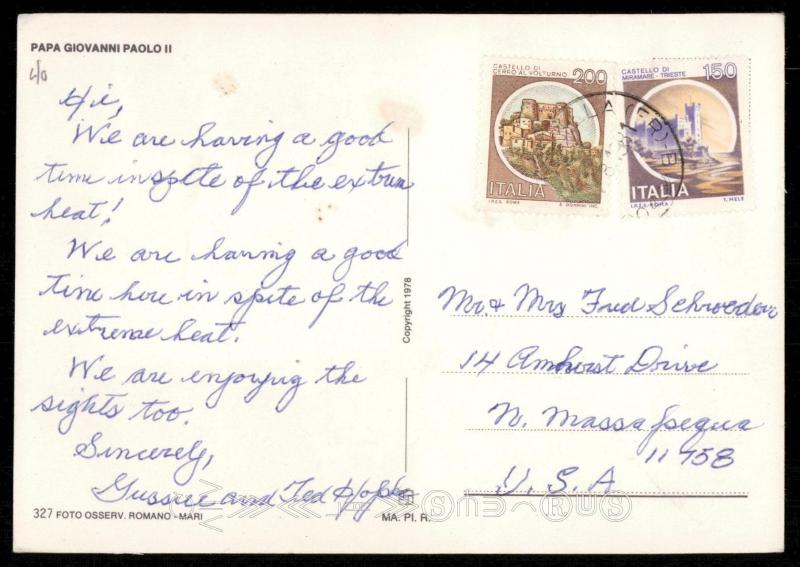 PAPA GIOVANNI PAOLO II
c/o
Hi,
We are having a good
time in spite of the extrem
heat!
We are having a good
time here in spite of the
extreme heat.
We are enjoying the
sights too.
Sincerely,
Gussie and Ted
327 FOTO OSSERV. ROMANO - MARI
MA. PI. R.
Copyright 1978
CASTELLO DI
CERRO AL VOLTURNO
200
ITALIA
I.P.Z.S. ROMA
E. DONNINI INC.
CASTELLO DI
MIRAMARE - TRIESTE
150
ITALIA
I.P.Z.S. - ROMA
T. MELE
Mr. & Mrs Fred Schroeder
14 Amherst Drive
N. Massapequa
11758
U.S.A